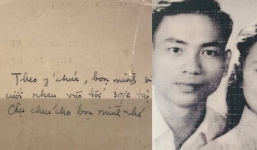 Theo ý chúa, bọn mình s
cưới nhau vào tối 30/6 tại
Cầu chúa cho bọn mình nhé